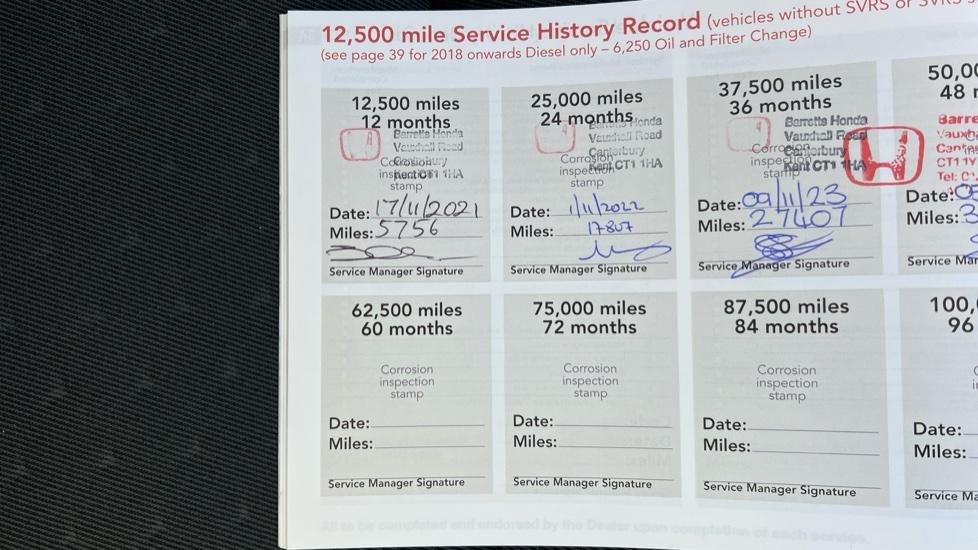 12,500 mile Service History Record (vehicles without SVRS or SVRS
(see page 39 for 2018 onwards Diesel only – 6,250 Oil and Filter Change)
12,500 miles
12 months
Barretts Honda
Vauxhall Road
Corrosion
inspection
Kent CT1 1HA
stamp
Date: 17/11/2021
Miles: 5756
Service Manager Signature
25,000 miles
24 months
Barretts Honda
Vauxhall Road
Canterbury
Corrosion
Kent CT1 1HA
inspection
stamp
Date: 1/11/2022
Miles: 17807
Service Manager Signature
37,500 miles
36 months
Barretts Honda
Vauxhall Road
Canterbury
Corrosion
Kent CT1 1HA
inspection
stamp
Date: 09/11/23
Miles: 27407
Service Manager Signature
50,0
48
Barre
Vauxh
Cant
CT1 1Y
Tel:
Date:
Miles: 3
Service Man
62,500 miles
60 months
Corrosion
inspection
stamp
Date:
Miles:
Service Manager Signature
75,000 miles
72 months
Corrosion
inspection
stamp
Date:
Miles:
Service Manager Signature
87,500 miles
84 months
Corrosion
inspection
stamp
Date:
Miles:
Service Manager Signature
100,
96
Date:
Miles:
Service Ma